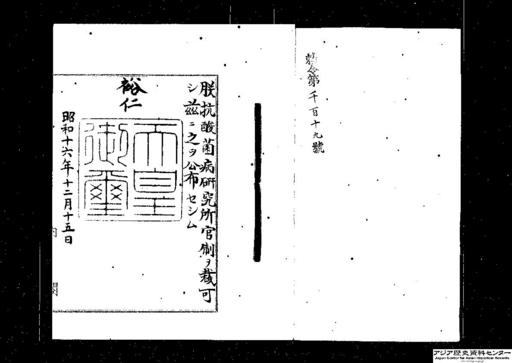 勅令第千百十九號
朕抗酸菌病研究所官制ヲ裁可
シ茲ニ之ヲ公布セシム
裕仁
天皇御璽
昭和十六年十二月十五日
内閣
アジア歴史資料センター
Japan Center for Asian Historical Records